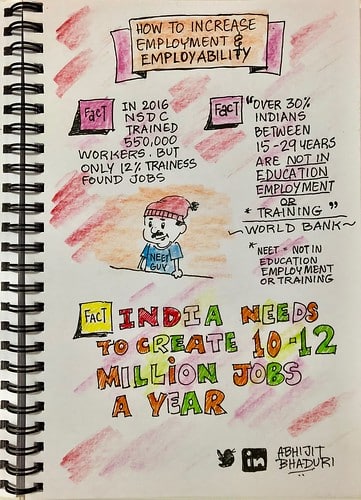 HOW TO INCREASE
EMPLOYMENT &
EMPLOYABILITY
FACT
IN 2016
NSDC
TRAINED
550,000
WORKERS. BUT
ONLY 12% TRAINESS
FOUND JOBS
FACT
"OVER 30%
INDIANS
BETWEEN
15-29 YEARS
ARE NOT IN
EDUCATION
EMPLOYMENT
OR
* TRAINING"
~WORLD BANK~
* NEET = NOT IN
EDUCATION
EMPLOYMENT
OR TRAINING
NEET
GUY
FACT
INDIA NEEDS
TO CREATE 10-12
MILLION JOBS
A YEAR
in
ABHIJIT
BHADURI